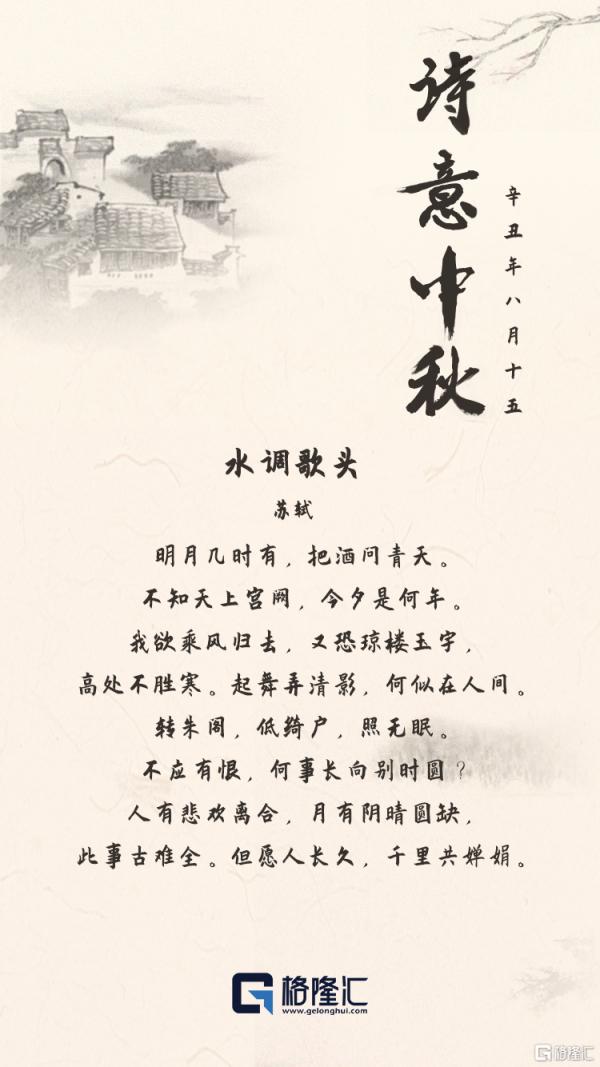 诗意中秋
辛丑年八月十五
水调歌头
苏轼
明月几时有，把酒问青天。
不知天上宫阙，今夕是何年。
我欲乘风归去，又恐琼楼玉宇，
高处不胜寒。起舞弄清影，何似在人间。
转朱阁，低绮户，照无眠。
不应有恨，何事长向别时圆？
人有悲欢离合，月有阴晴圆缺，
此事古难全。但愿人长久，千里共婵娟。
格隆汇
www.gelonghui.com
格隆汇